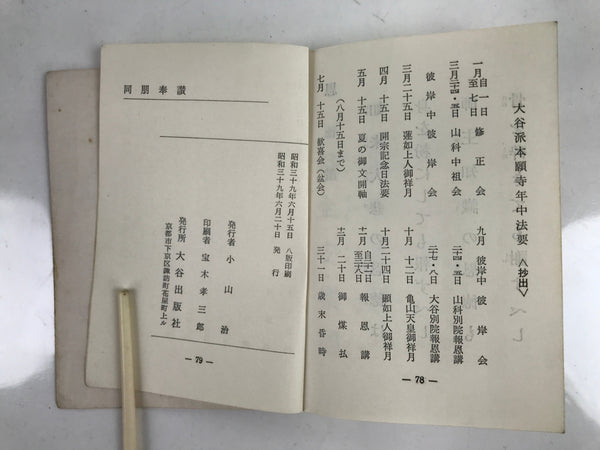 大谷派本願寺年中法要〈抄出〉
一月自一日至七日 修正会
三月二十四・五日 山科中祖会
彼岸中 彼岸会
三月二十五日 蓮如上人御祥月
四月十五日 開宗記念日法要
五月十五日 夏の御文開軸
(八月十五日まで)
七月十五日 歓喜会(盆会)
九月 彼岸中 彼岸会
二十四・五日 山科別院報恩講
二十七・八日 大谷別院報恩講
十月十二日 亀山天皇御祥月
十月二十四日 顕如上人御祥月
十一月自二十一日至二十八日 報恩講
十二月二十日 御煤払
三十一日 歳末昏時
— 78 —
同朋奉讃
昭和三十九年六月十五日 八版印刷
昭和三十九年六月二十日 発行
発行者 小山治
印刷者 宝木孝三郎
発行所 大谷出版社
京都市下京区諏訪町花屋町上ル
— 79 —